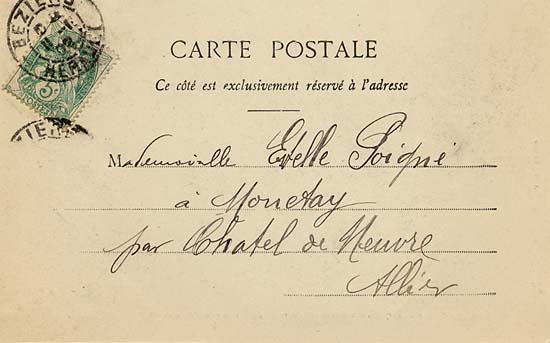 BEZIERS
HERAULT
5
POSTES
CARTE POSTALE
Ce côté est exclusivement réservé à l'adresse
Mademoiselle Etelle Poigné
à Monetay
par Chatel de Neuvre
Allier